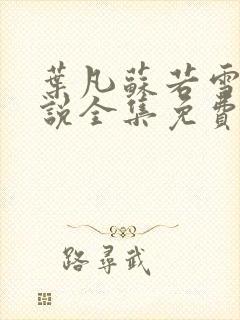 葉凡蘇若雪
說全集免費
路尋武